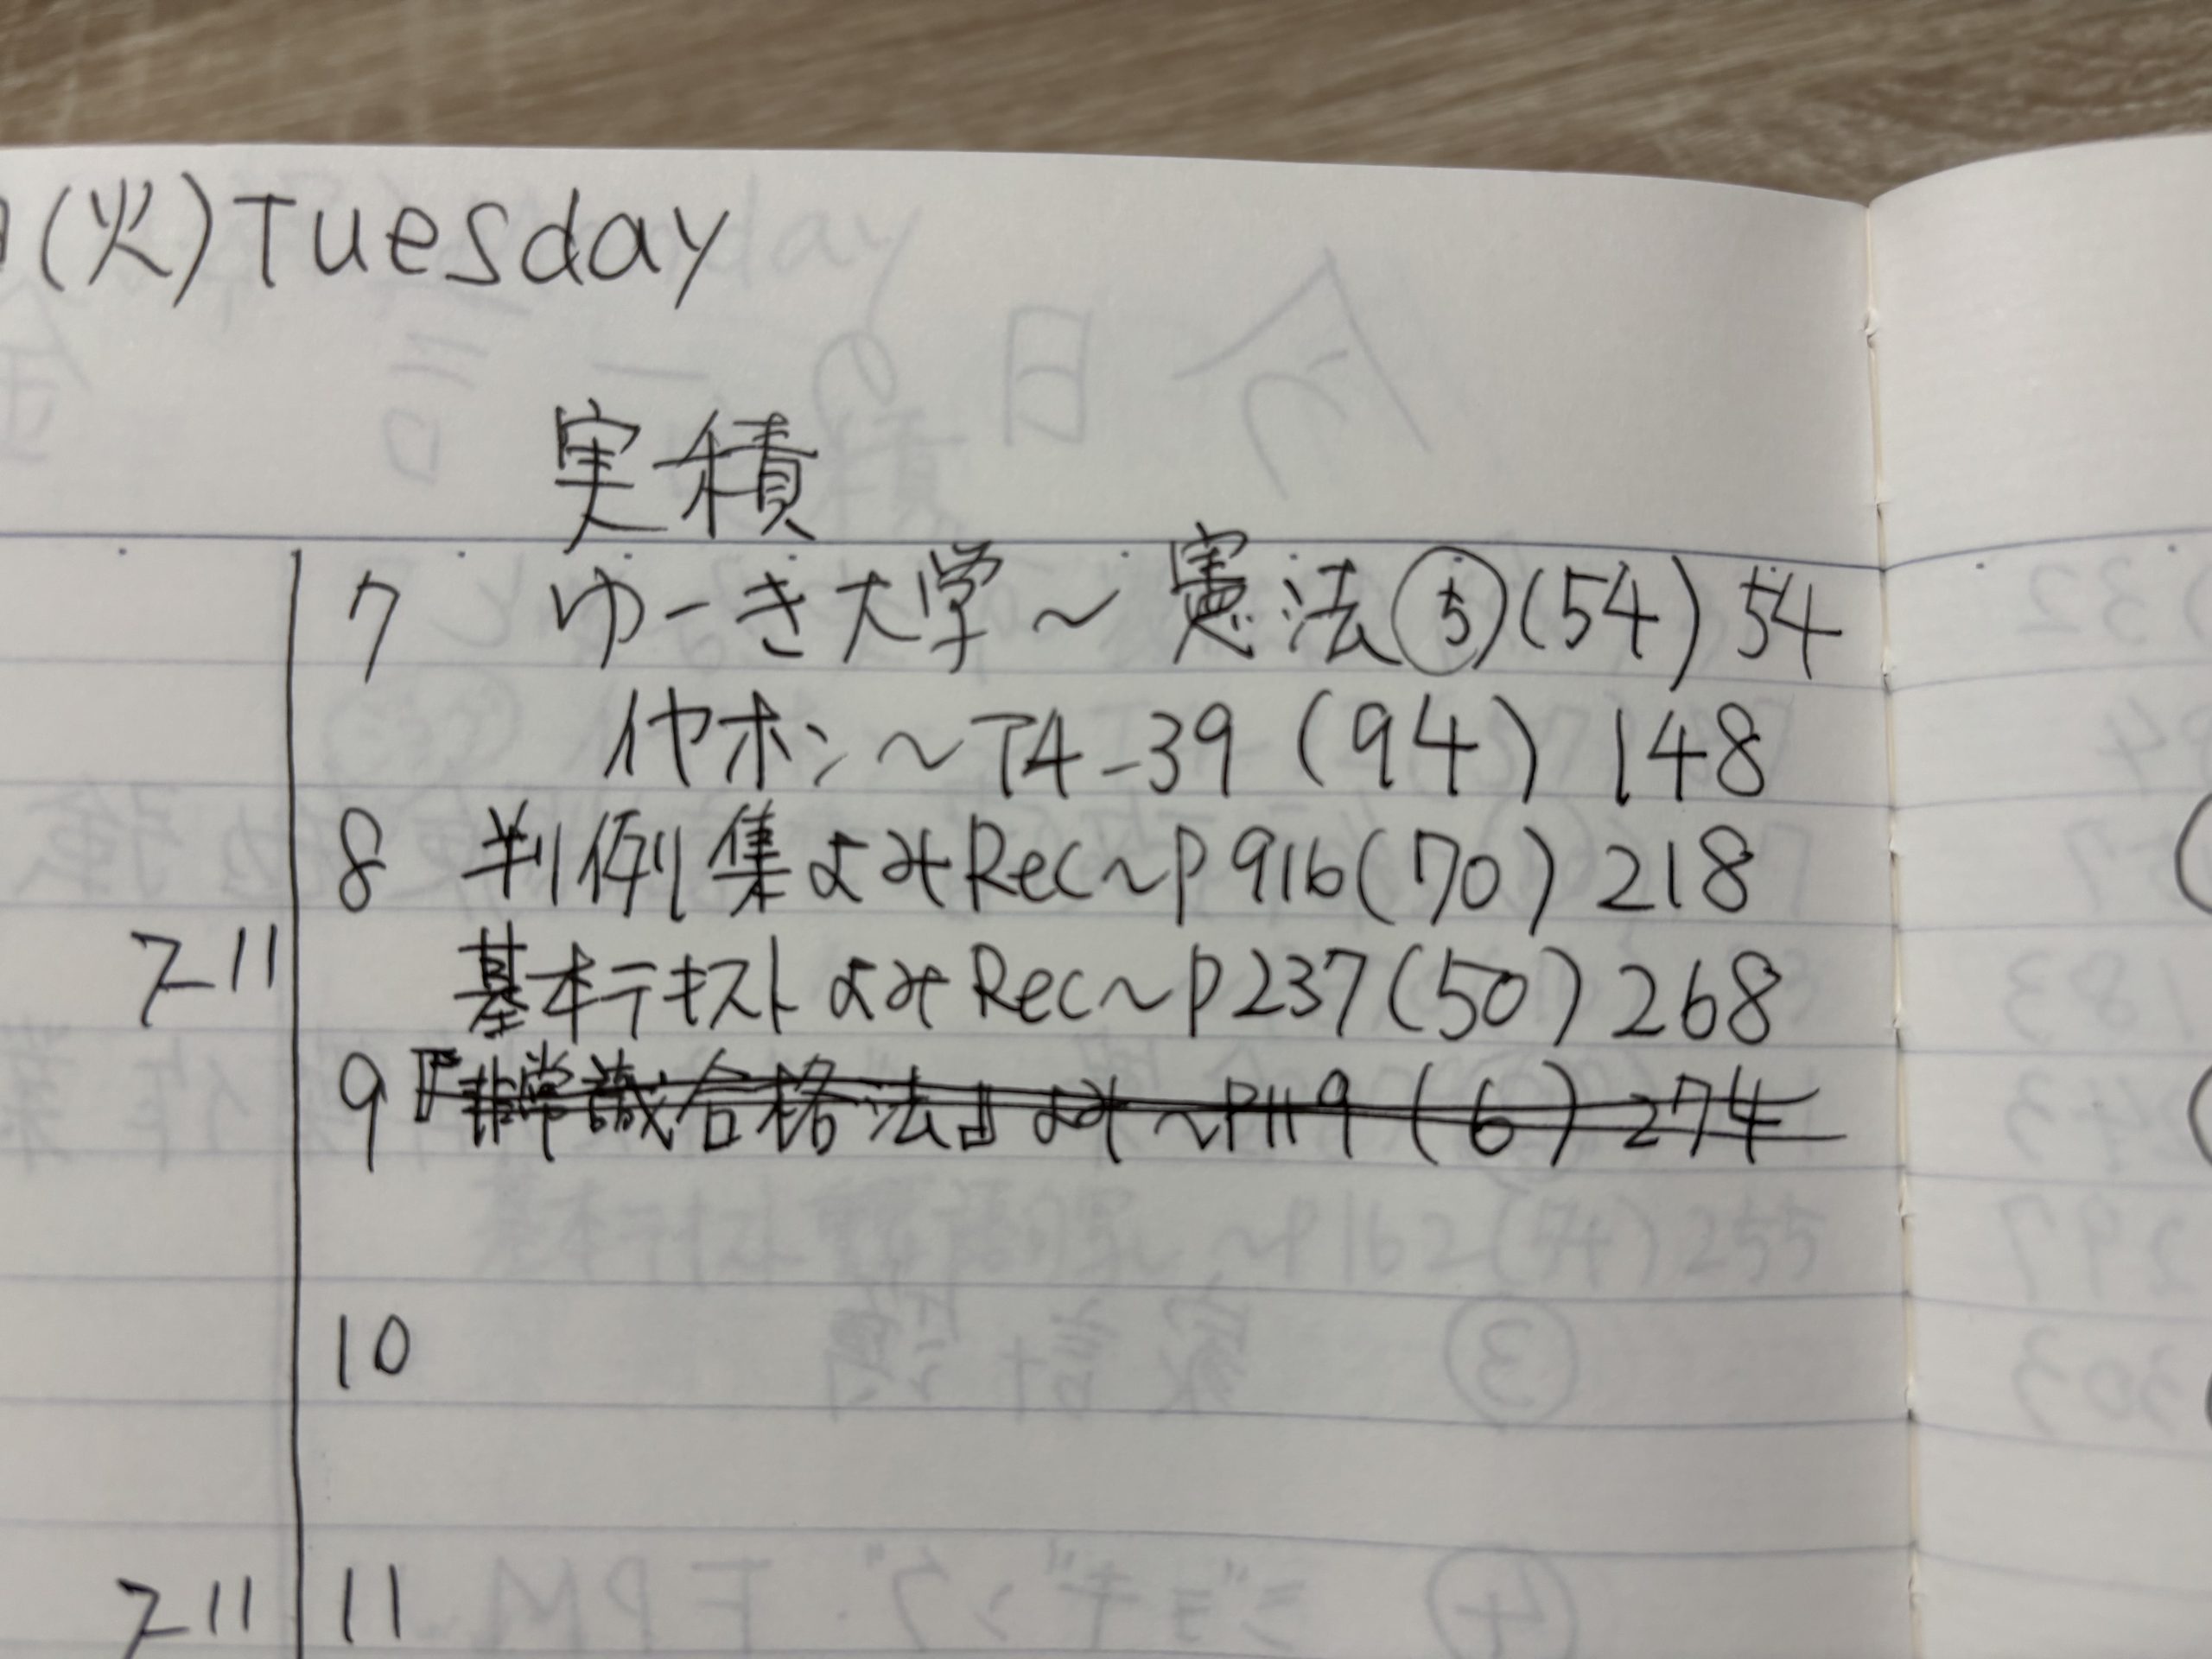 (火)Tuesday
実積
7 ゆーき大学～憲法⑤(54)54
イヤホン～T4-39(94)148
8 判例集よみRec～P916(70)218
基本テキストよみRec～P237(50)268
9 『非常識合格法』よみ～P119(6)274
10
11